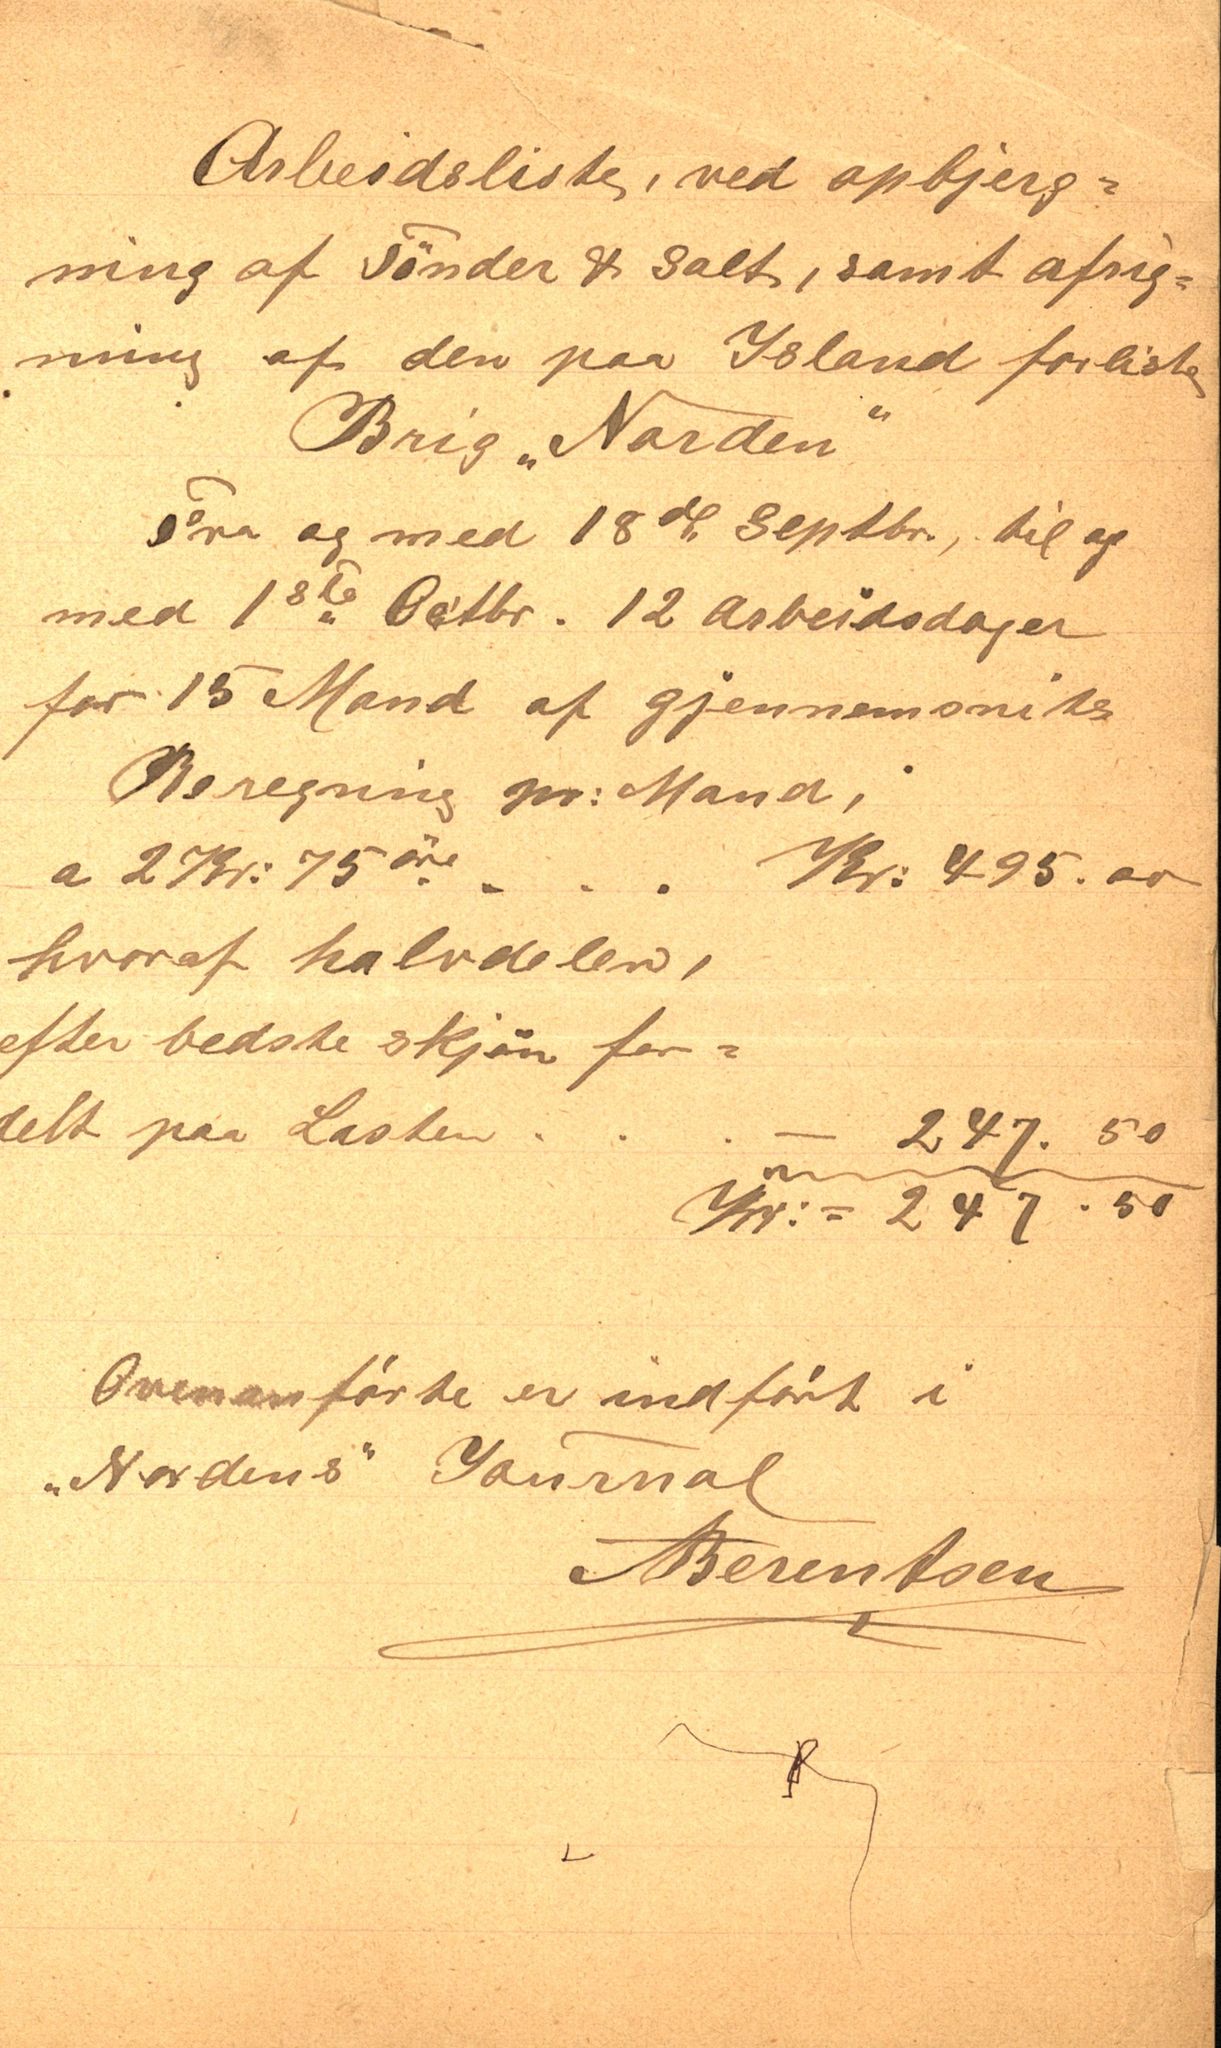 Arbeidsliste, ved opbjerg=
ning af Tönder & Salt, samt afrig=
ning af den paa Island forliste
Brig „Norden“
Fra og med 18de Septbr., til og
med 1ste Octbr. 12 Arbeidsdager
for 15 Mand af gjennemsnits
Beregning pr: Mand,
a 2 Kr: 75 öre . . . Kr: 495. oo
hvoraf halvdelen,
efter bedste skjön for=
delt paa Lasten . . . — 247. 50
Kr: = 247. 50
Ovenanförte er indfört i
„Nordens“ Journal
ABerentsen